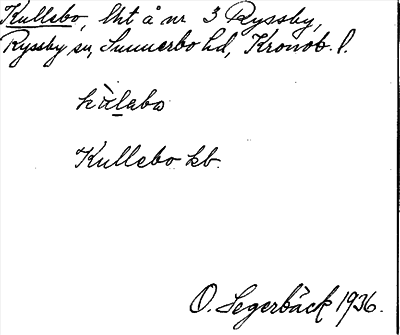 Kullebo, lht å nr 3 Ryssby,
Ryssby sn, Sunnerbo hd, Kronob. l.
Kullebo kb.
O. Segerbäck 1936.